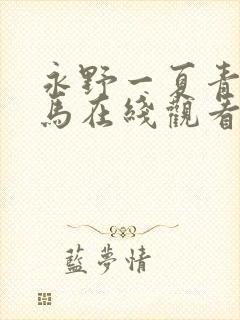 永野一夏青
馬在綫觀看
藍夢情